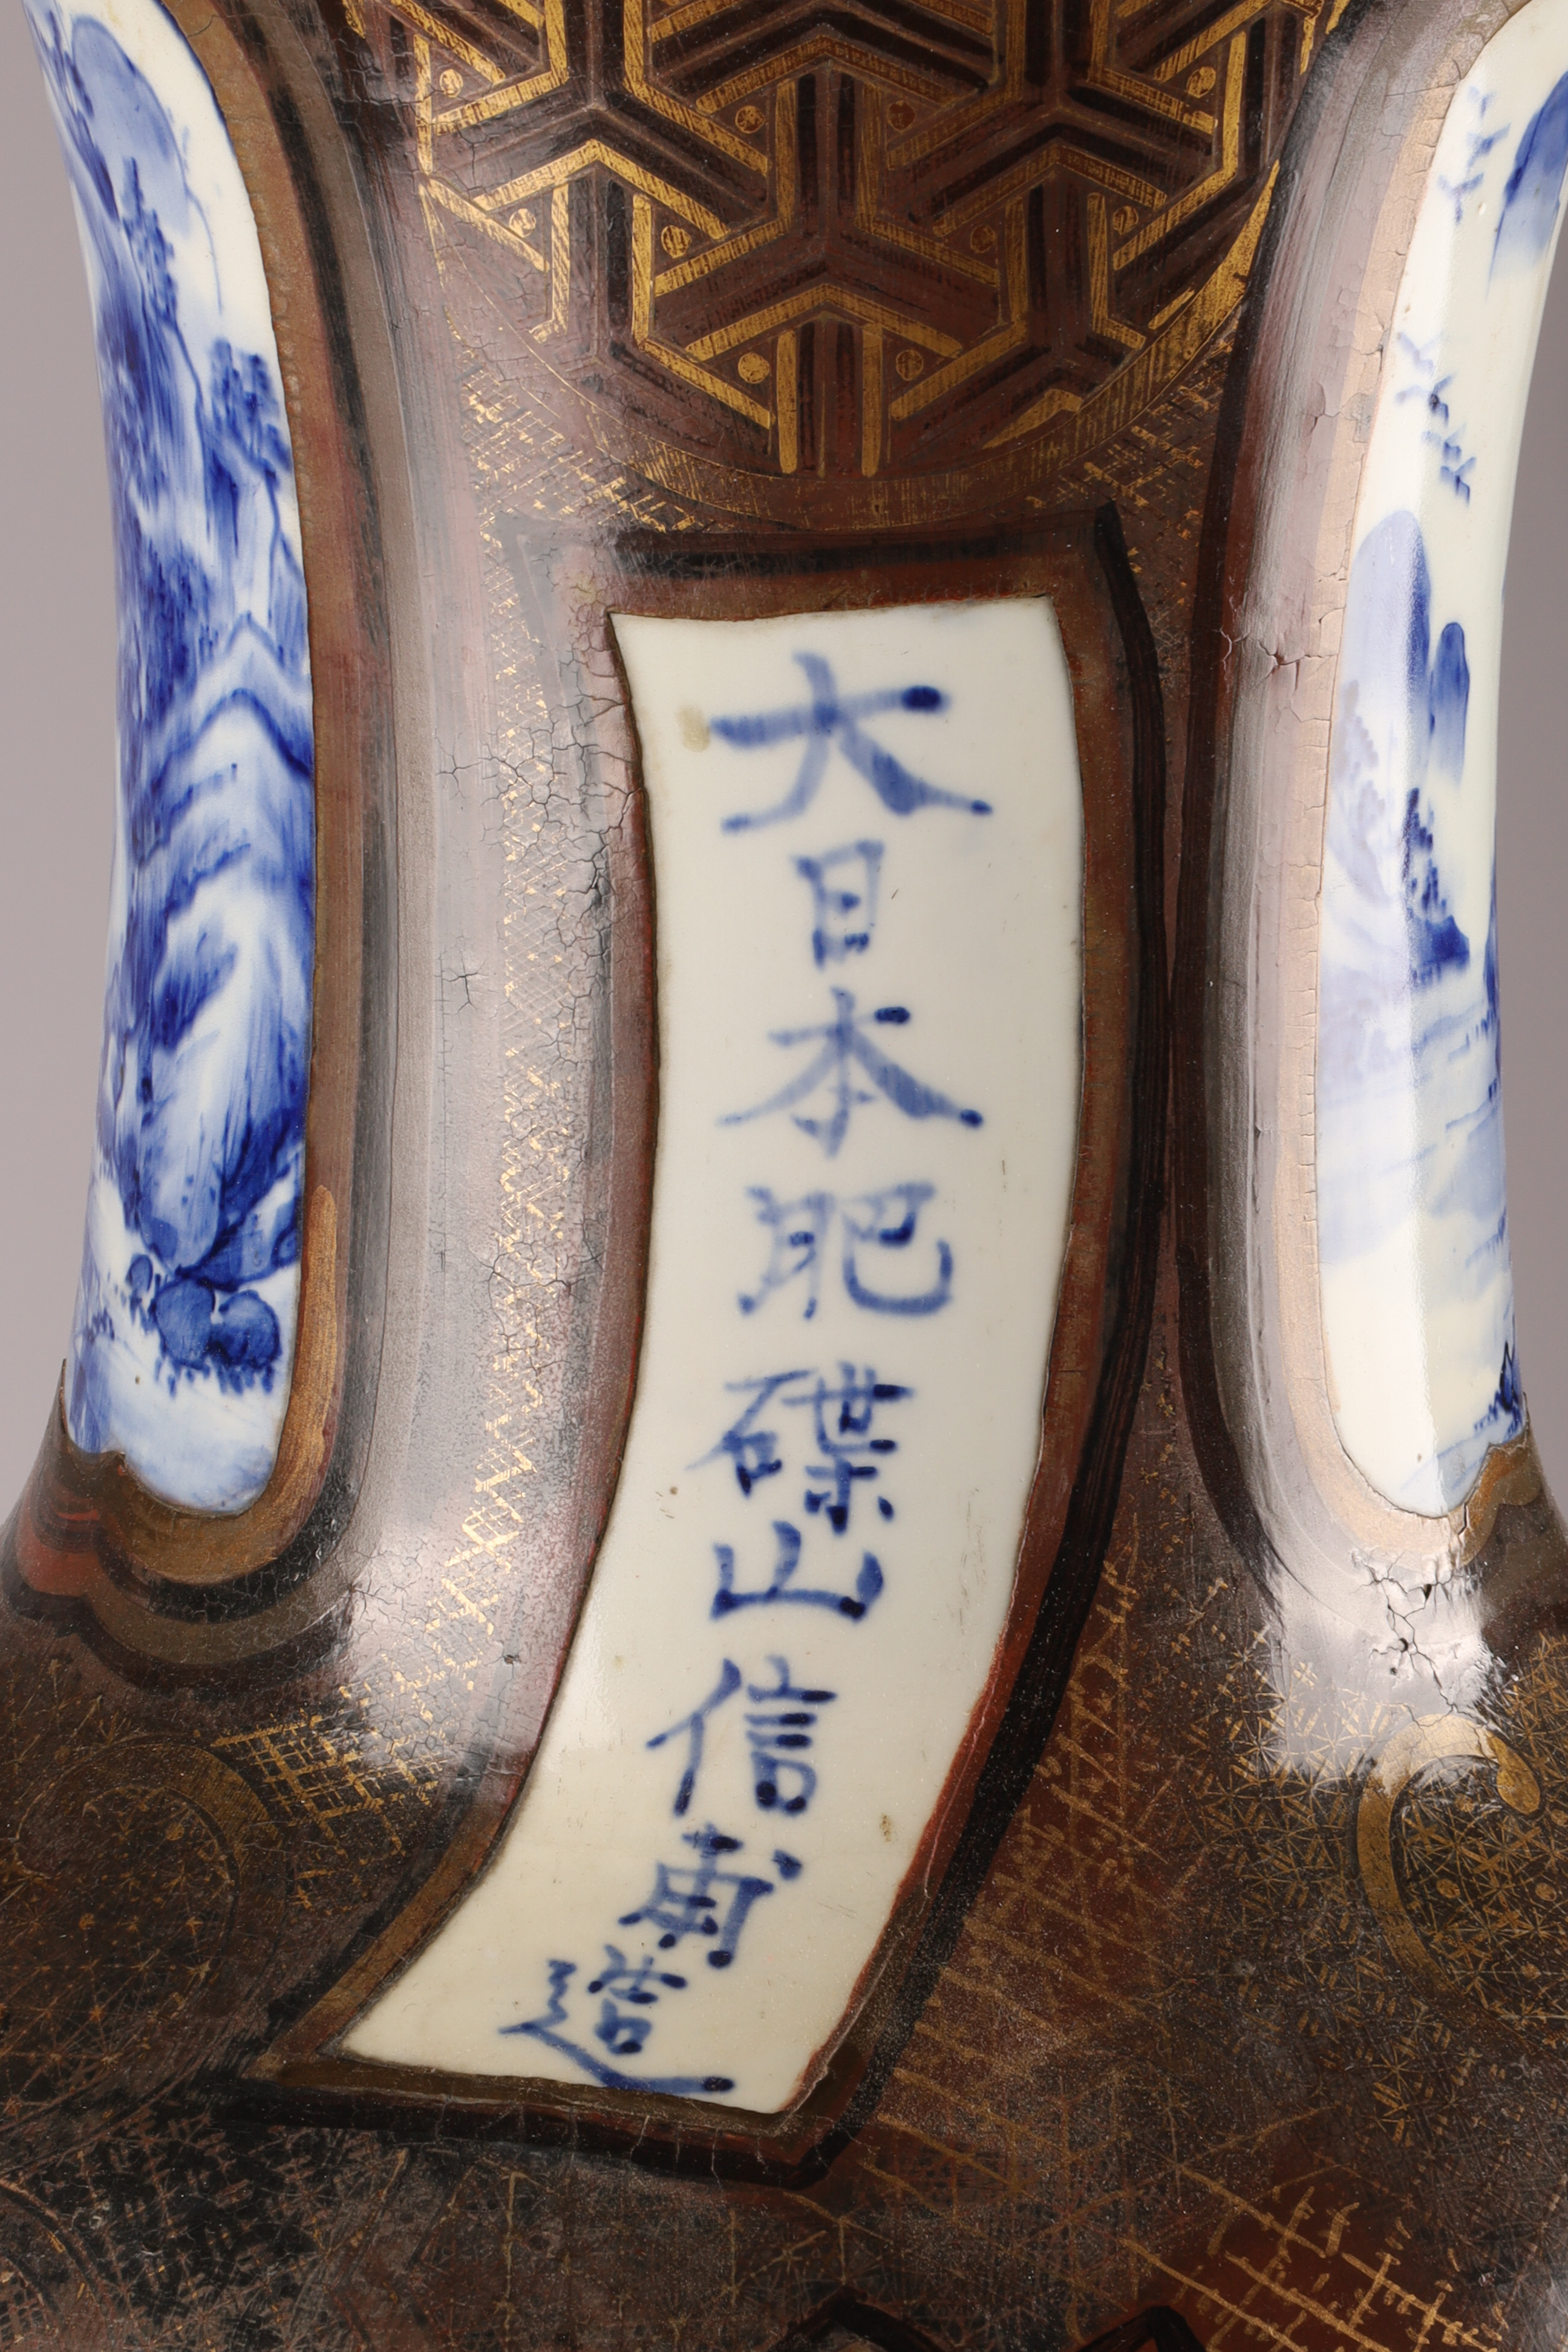 大日本肥碟山信甫造